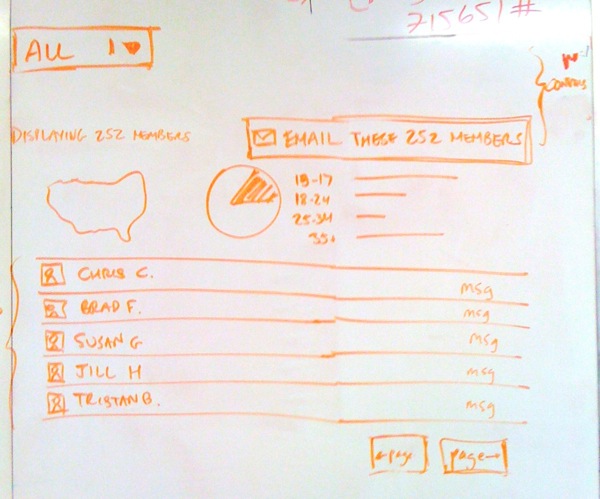 715651#
ALL
DISPLAYING 252 MEMBERS
EMAIL THESE 252 MEMBERS
18-24
25-34
35+
CHRIS C.
msg
BRAD F.
msg
SUSAN G
msg
JILL H
msg
TRISTAN B.
msg
←page
page→